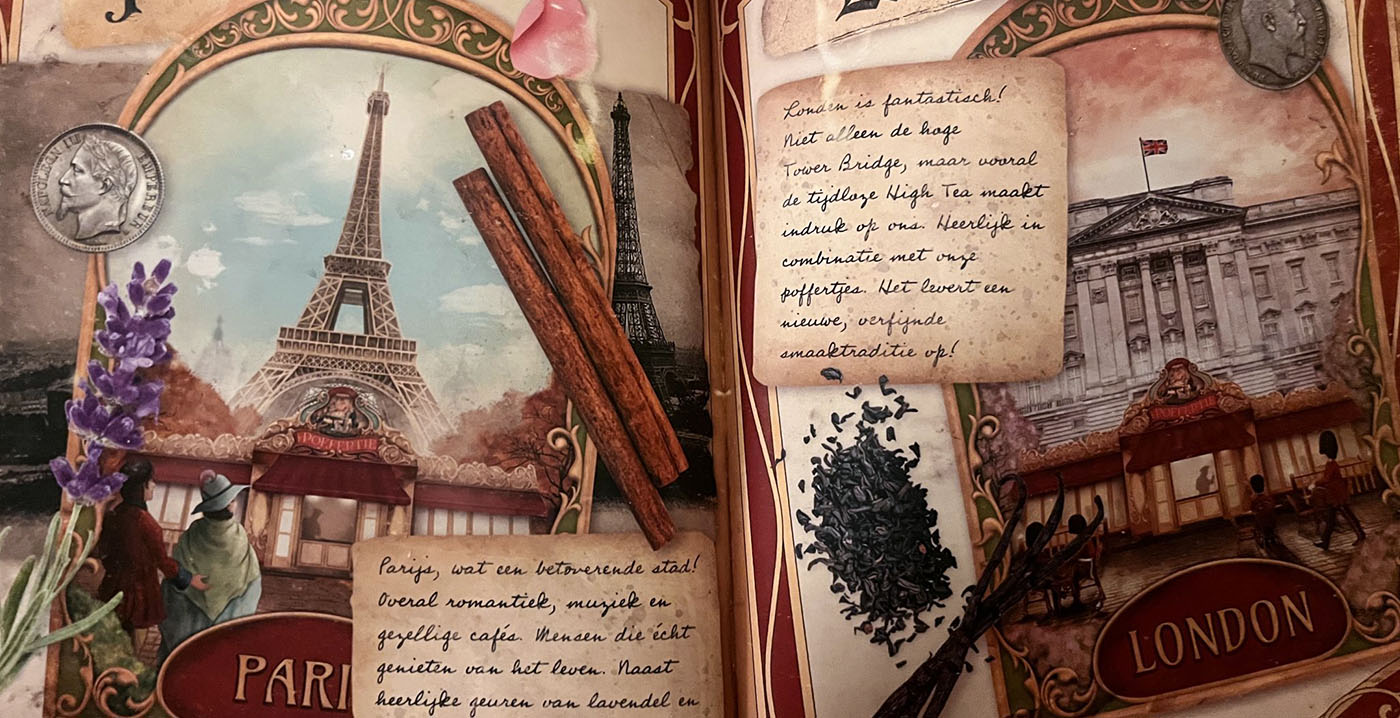 NAPOLEON III EMPEREUR
POFFERTJE
PARI
Parijs, wat een betoverende stad!
Overal romantiek, muziek en
gezellige cafés. Mensen die écht
genieten van het leven. Naast
heerlijke geuren van lavendel en
Londen is fantastisch!
Niet alleen de hoge
Tower Bridge, maar vooral
de tijdloze High Tea maakt
indruk op ons. Heerlijk in
combinatie met onze
poffertjes. Het levert een
nieuwe, verfijnde
smaaktraditie op!
POFFERTJE
LONDON